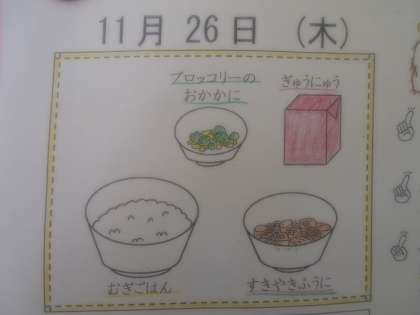 11月 26日 (木)
ブロッコリーの
おかかに
ぎゅうにゅう
むぎごはん
すきやきふうに